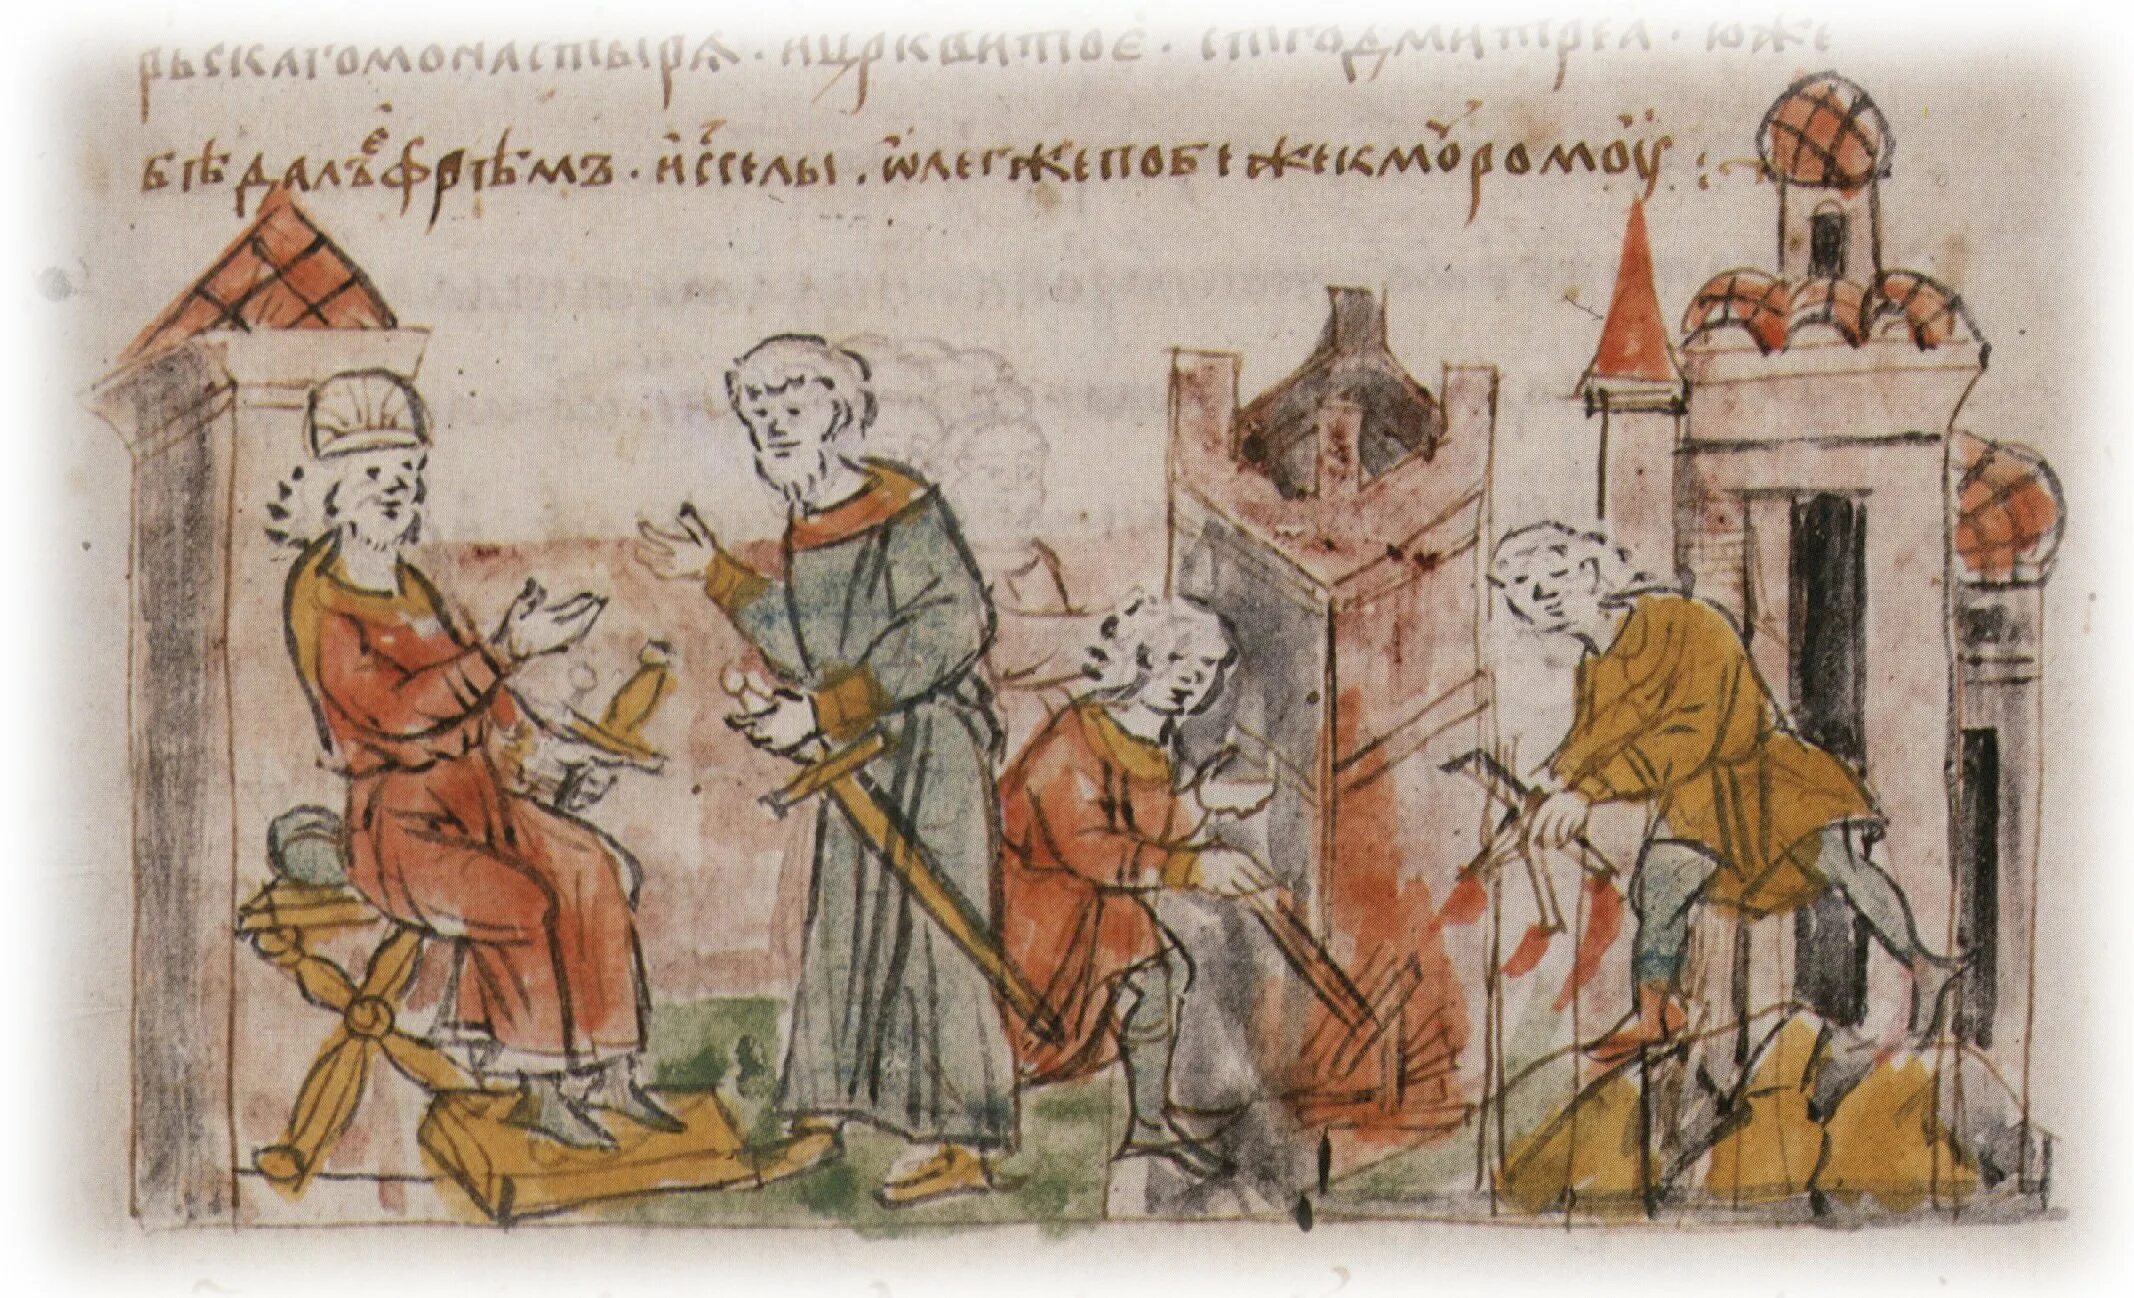 рьскаго монастырѧ · и цркви тоє · ст҃го дмитреа · юже
бѣ далъ ефрѣмъ · и с селы · ѡлег же побеже к мꙋромоу :